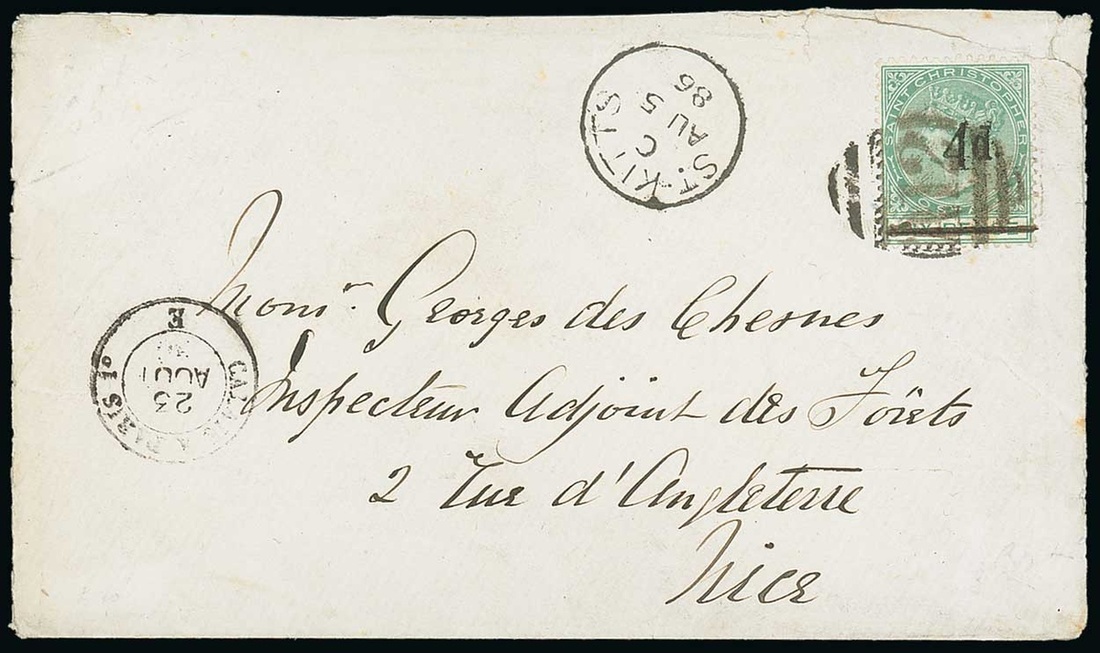 SAINT CHRISTOPHER
4d.
A12
ST. KITTS
C
AU 5
86
Monsr Georges des Chesnes
Inspecteur Adjoint des Forêts
2 Rue d'Angleterre
Nice
CALAIS A PARIS 1º
23
AOUT
E